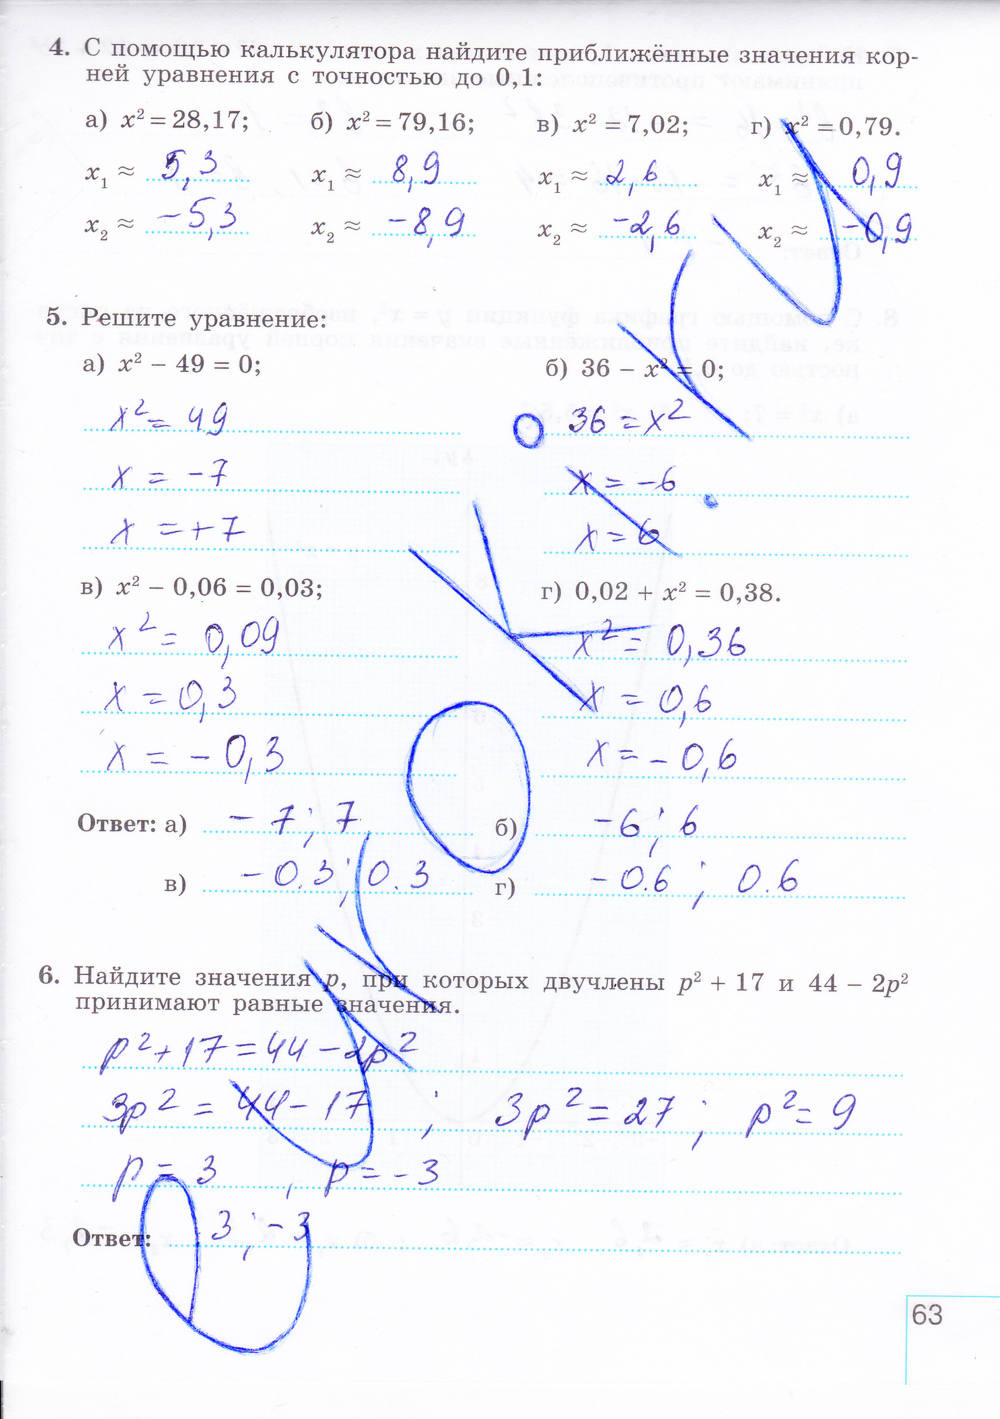 4. С помощью калькулятора найдите приближённые значения кор-
ней уравнения с точностью до 0,1:
а) x² = 28,17; б) x² = 79,16; в) x² = 7,02; г) x² = 0,79.
x₁ ≈ 5,3 x₁ ≈ 8,9 x₁ ≈ 2,6 x₁ ≈ 0,9
x₂ ≈ -5,3 x₂ ≈ -8,9 x₂ ≈ -2,6 x₂ ≈ -0,9
5. Решите уравнение:
а) x² − 49 = 0; б) 36 − x² = 0;
x² = 49 36 = x²
x = -7 x = -6
x = +7 x = 6
в) x² − 0,06 = 0,03; г) 0,02 + x² = 0,38.
x² = 0,09 x² = 0,36
x = 0,3 x = 0,6
x = -0,3 x = -0,6
Ответ: а) -7; 7 б) -6; 6
в) -0.3; 0.3 г) -0.6; 0.6
6. Найдите значения p, при которых двучлены p² + 17 и 44 − 2p²
принимают равные значения.
p² + 17 = 44 - 2p²
3p² = 44 - 17 ; 3p² = 27 ; p² = 9
p = 3 , p = -3
Ответ: 3; -3
63